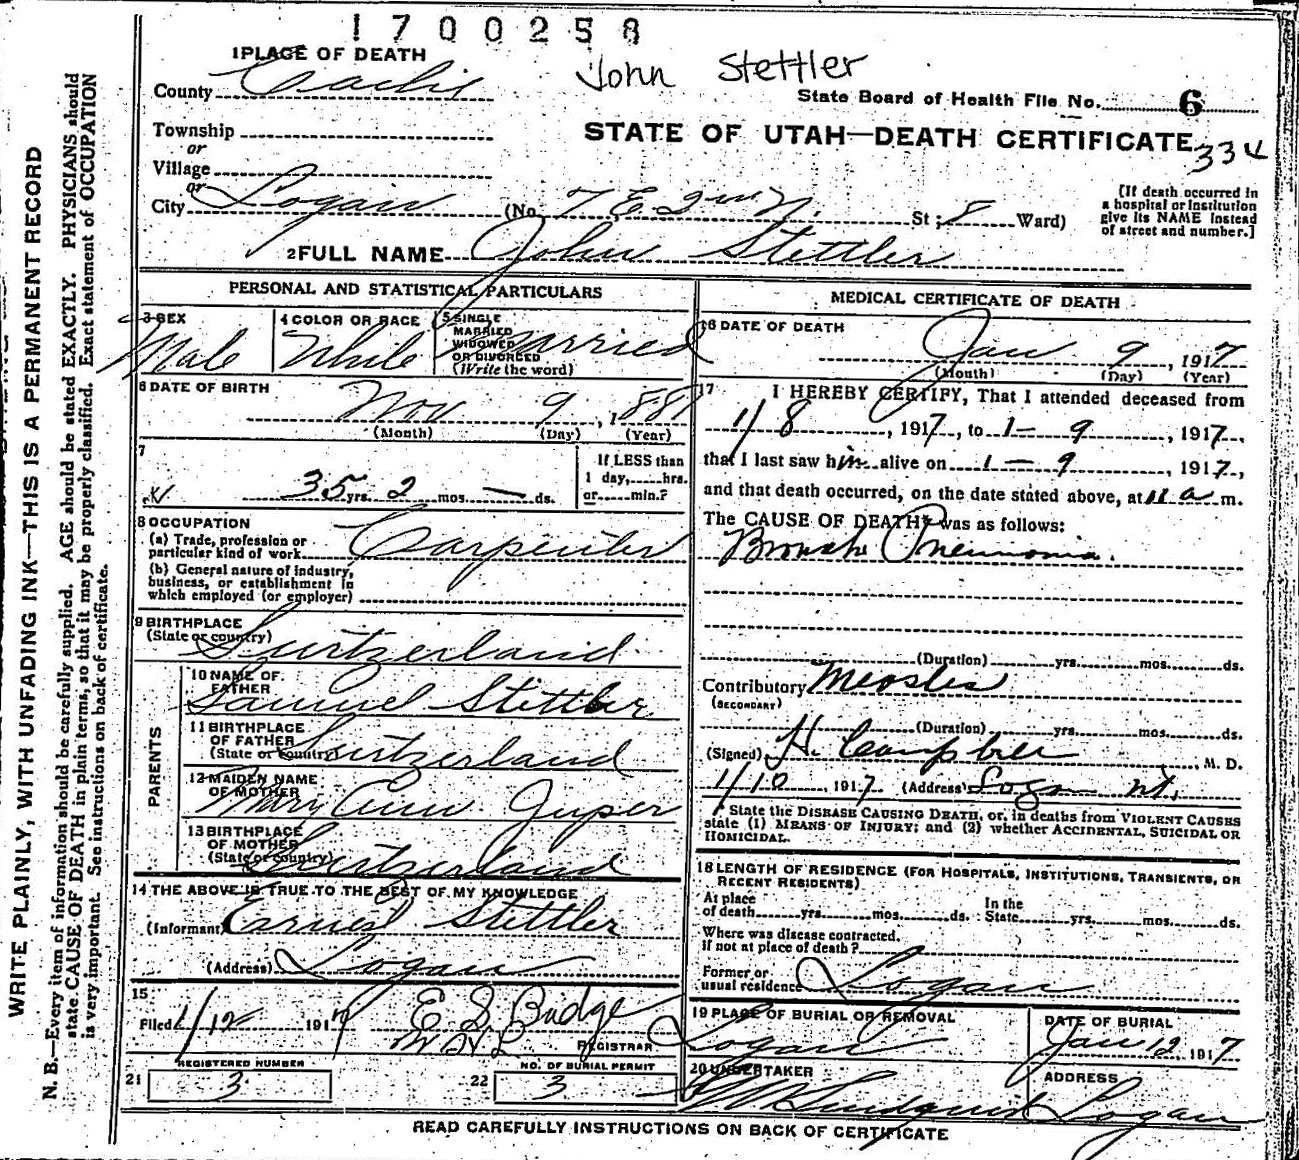 1700258
John Stettler
1 PLACE OF DEATH
County Cache
State Board of Health File No. 6
334
Township
or
Village
or
City Logan (No. 7 E. 2nd N. St; 8 Ward)
STATE OF UTAH—DEATH CERTIFICATE
[If death occurred in
a hospital or institution
give its NAME instead
of street and number.]
2 FULL NAME John Stettler
PERSONAL AND STATISTICAL PARTICULARS
3 SEX
Male
4 COLOR OR RACE
White
5 SINGLE
MARRIED
WIDOWED
OR DIVORCED
(Write the word)
Married
6 DATE OF BIRTH
Nov 9, 1881
(Month) (Day) (Year)
7
35 yrs. 2 mos. — ds.
If LESS than
1 day,......hrs.
or......min.?
8 OCCUPATION
(a) Trade, profession or
particular kind of work Carpenter
(b) General nature of industry,
business, or establishment in
which employed (or employer)
9 BIRTHPLACE
(State or country)
Switzerland
PARENTS
10 NAME OF
FATHER
Samuel Stettler
11 BIRTHPLACE
OF FATHER
(State or country)
Switzerland
12 MAIDEN NAME
OF MOTHER
Mary Ann
13 BIRTHPLACE
OF MOTHER
(State or country)
Switzerland
14 THE ABOVE IS TRUE TO THE BEST OF MY KNOWLEDGE
(Informant) Ernest Stettler
(Address) Logan
15
Filed 1/12 1917 E S Budge
REGISTRAR
REGISTERED NUMBER
21 3
NO. OF BURIAL PERMIT
22 3
MEDICAL CERTIFICATE OF DEATH
16 DATE OF DEATH
Jan 9, 1917
(Month) (Day) (Year)
17 I HEREBY CERTIFY, That I attended deceased from
1/8, 1917, to 1-9, 1917,
that I last saw him alive on 1-9, 1917,
and that death occurred, on the date stated above, at 11 a m.
The CAUSE OF DEATH* was as follows:
Broncho Pneumonia.
(Duration) yrs. mos. ds.
Contributory Measles
(SECONDARY)
(Duration) yrs. mos. ds.
(Signed) H. , M. D.
1/10, 1917 (Address) Logan Ut.
* State the DISEASE CAUSING DEATH, or, in deaths from VIOLENT CAUSES
state (1) MEANS OF INJURY; and (2) whether ACCIDENTAL, SUICIDAL OR
HOMICIDAL.
18 LENGTH OF RESIDENCE (FOR HOSPITALS, INSTITUTIONS, TRANSIENTS, OR
RECENT RESIDENTS)
At place
of death yrs. mos. ds.
In the
State yrs. mos. ds.
Where was disease contracted,
if not at place of death?
Former or
usual residence Logan
19 PLACE OF BURIAL OR REMOVAL
Logan
DATE OF BURIAL
Jan 12, 1917
20 UNDERTAKER
Lindquist
ADDRESS
Logan
READ CAREFULLY INSTRUCTIONS ON BACK OF CERTIFICATE
WRITE PLAINLY, WITH UNFADING INK—THIS IS A PERMANENT RECORD
N. B.—Every item of information should be carefully supplied. AGE should be stated EXACTLY. PHYSICIANS should
state CAUSE OF DEATH in plain terms, so that it may be properly classified. Exact statement of OCCUPATION
is very important. See instructions on back of certificate.